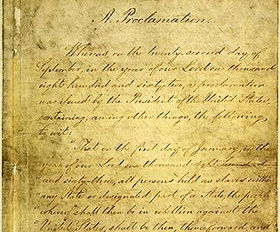 A Proclamation.
Whereas, on the twenty-second day of
September, in the year of our Lord one thousand
eight hundred and sixty-two, a proclamation
was issued by the President of the United States,
containing, among other things, the following,
to wit:
"That on the first day of January, in the
"year of our Lord one thousand eight hundred
"and sixty-three, all persons held as slaves within
"any State or designated part of a State, the people
"whereof shall then be in rebellion against the
"United States, shall be then, thenceforward, and